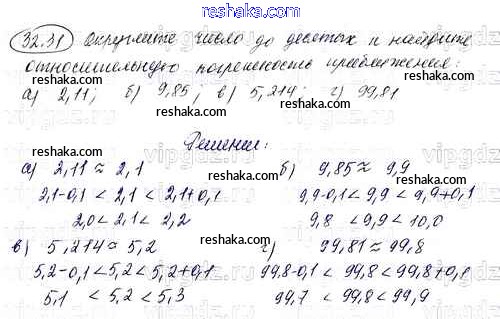 reshaka.ru
32.31 Округлите число до десятых и найдите
относительную погрешность приближения:
а) 2,11; б) 9,85; в) 5,214; г) 99,81
Решение:
а) 2,11 ≈ 2,1 б) 9,85 ≈ 9,9
2,1-0,1 < 2,1 < 2,1+0,1 9,9-0,1 < 9,9 < 9,9+0,1
2,0 < 2,1 < 2,2 9,8 < 9,9 < 10,0
в) 5,214 ≈ 5,2 г) 99,81 ≈ 99,8
5,2-0,1 < 5,2 < 5,2+0,1 99,8-0,1 < 99,8 < 99,8+0,1
5,1 < 5,2 < 5,3 99,7 < 99,8 < 99,9